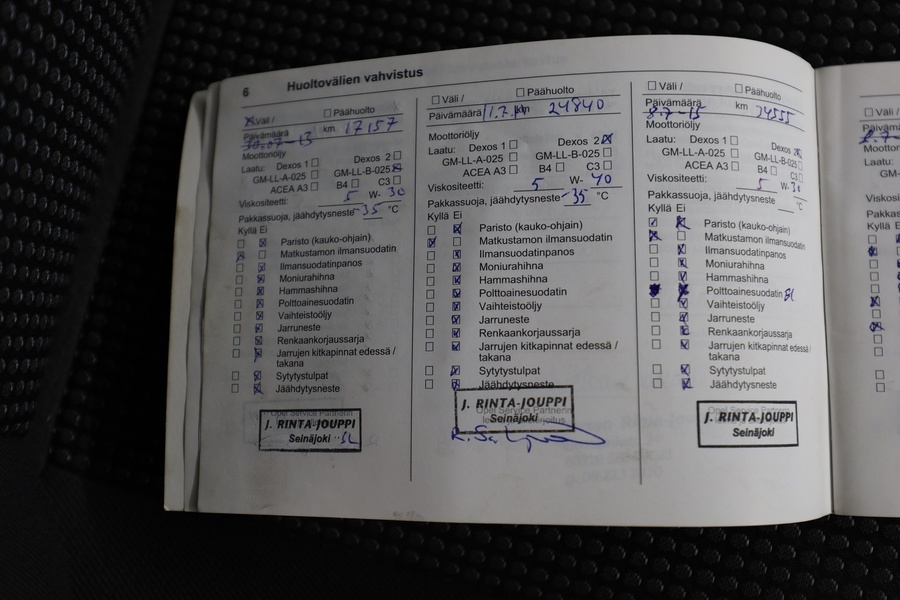 6 Huoltovälien vahvistus
Väli / Päähuolto
Päivämäärä km 17157
30.07-13
Moottoriöljy
Laatu: Dexos 1 Dexos 2
GM-LL-A-025 GM-LL-B-025
ACEA A3 B4 C3
Viskositeetti: 5 W- 30
Pakkassuoja, jäähdytysneste -35 °C
Kyllä Ei
Paristo (kauko-ohjain)
Matkustamon ilmansuodatin
Ilmansuodatinpanos
Moniurahihna
Hammashihna
Polttoainesuodatin
Vaihteistoöljy
Jarruneste
Renkaankorjaussarja
Jarrujen kitkapinnat edessä /
takana
Sytytystulpat
Jäähdytysneste
J. RINTA-JOUPPI
Seinäjoki
Väli / Päähuolto
Päivämäärä km 24840
Moottoriöljy
Laatu: Dexos 1 Dexos 2
GM-LL-A-025 GM-LL-B-025
ACEA A3 B4 C3
Viskositeetti: 5 W- 40
Pakkassuoja, jäähdytysneste -35 °C
Kyllä Ei
Paristo (kauko-ohjain)
Matkustamon ilmansuodatin
Ilmansuodatinpanos
Moniurahihna
Hammashihna
Polttoainesuodatin
Vaihteistoöljy
Jarruneste
Renkaankorjaussarja
Jarrujen kitkapinnat edessä /
takana
Sytytystulpat
Jäähdytysneste
J. RINTA-JOUPPI
Opel Service Partnerin
Seinäjoki
Väli / Päähuolto
Päivämäärä km 34555
8.7-15
Moottoriöljy
Laatu: Dexos 1 Dexos
GM-LL-A-025 GM-LL-B-025
ACEA A3 B4 C3
Viskositeetti: 5 W- 30
Pakkassuoja, jäähdytysneste °C
Kyllä Ei
Paristo (kauko-ohjain)
Matkustamon ilmansuodatin
Ilmansuodatinpanos
Moniurahihna
Hammashihna
Polttoainesuodatin
Vaihteistoöljy
Jarruneste
Renkaankorjaussarja
Jarrujen kitkapinnat edessä /
takana
Sytytystulpat
Jäähdytysneste
J. RINTA-JOUPPI
Seinäjoki
Väli /
Laatu:
GM-
Kyllä Ei